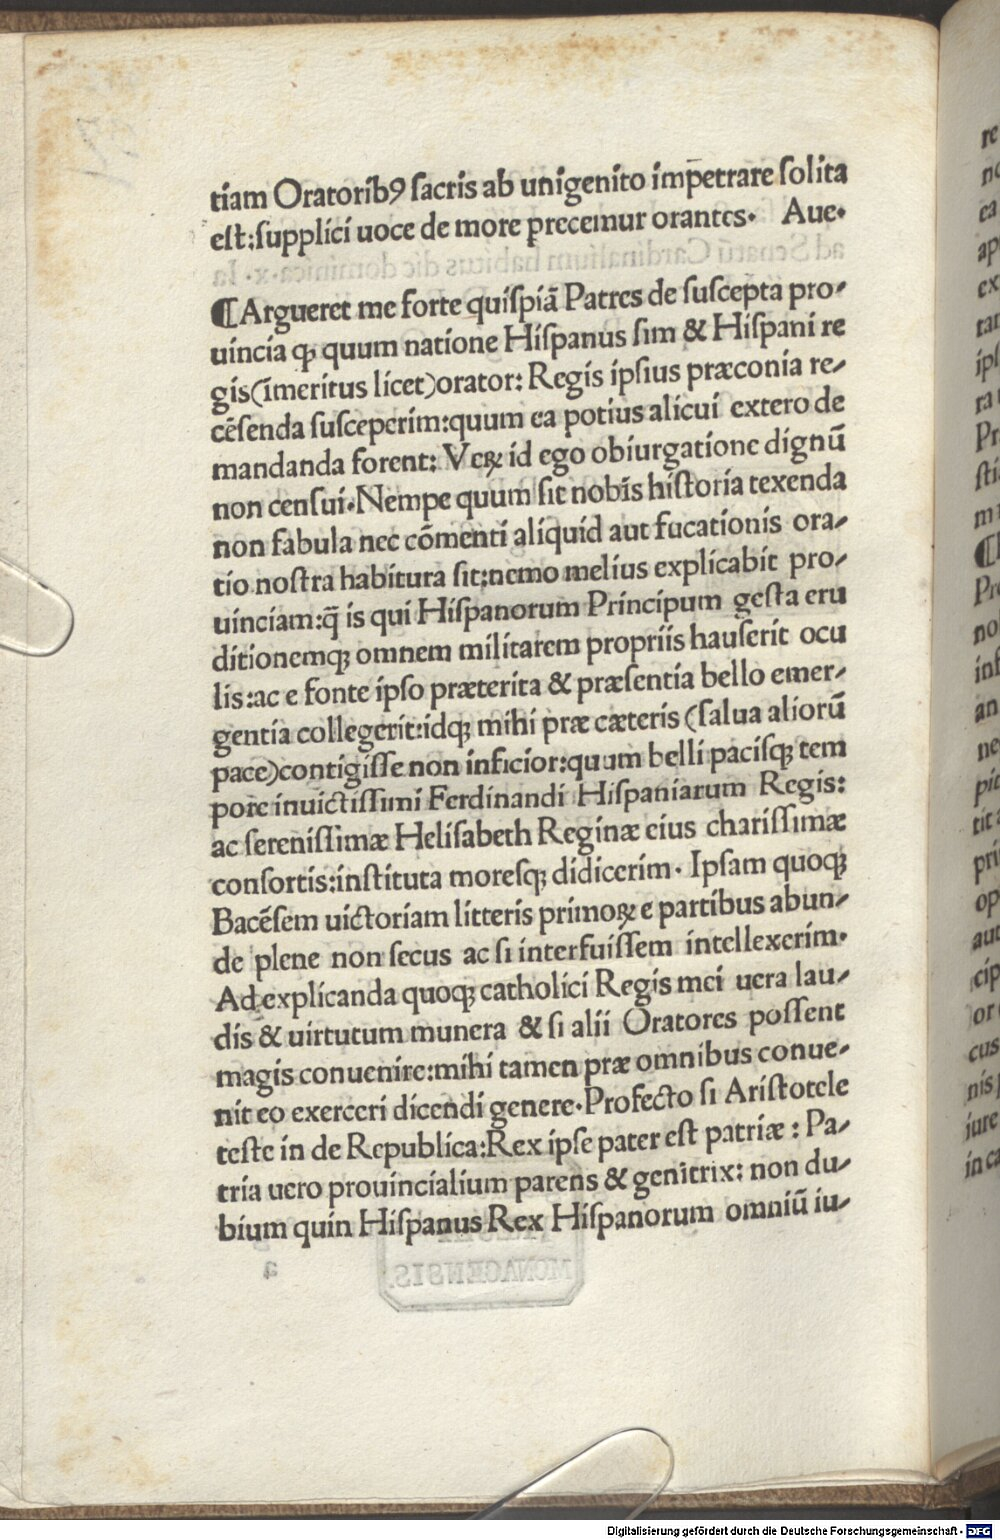 tiam Oratoribꝰ ſacris ab unigenito imp̄etrare ſolita
eſt:ſupplici uoce de more precemur orantes. Aue.
¶Argueret me forte quiſpiā Patres de ſuſcepta pro-
uincia ꝙ quum natione Hiſpanus ſim & Hiſpani re
gis(īmeritus licet)orator: Regis ipſius præconia re-
cēſenda ſuſceperim:quum ea potius alicui extero de
mandanda forent: Veꝝ id ego obiurgatione dignū
non cenſui.Nempe quum ſit nobis hiſtoria texenda
non fabula nec cōmenti aliquid aut fucationis ora-
tio noſtra habitura ſit:nemo melius explicabit pro-
uinciam:q̄ is qui Hiſpanorum Principum geſta eru
ditionemqꝫ omnem militarem propriis hauſerit ocu
lis:ac e fonte ipſo præterita & præſentia bello emer-
gentia collegerit:idqꝫ mihi præ cæteris (ſalua aliorū
pace)contigiſſe non inficior:quum belli paciſqꝫ tem
pore inuictiſſimi Ferdinandi Hiſpaniarum Regis:
ac ſereniſſimæ Heliſabeth Reginæ eius chariſſimæ
conſortis:inſtituta moreſqꝫ didicerim. Ipſam quoqꝫ
Bacēſem uictoriam litteris primoꝝ e partibus abun-
de plene non ſecus ac ſi interfuiſſem intellexerim.
Ad explicanda quoqꝫ catholici Regis mei uera lau-
dis & uirtutum munera & ſi alii Oratores poſſent
magis conuenire:mihi tamen præ omnibus conue-
nit eo exerceri dicendi genere.Profecto ſi Ariſtotele
teſte in de Republica:Rex ipſe pater eſt patriæ : Pa-
tria uero prouincialium parens & genitrix: non du-
bium quin Hiſpanus Rex Hiſpanorum omniū iu-
MONACENSIS.
Digitalisierung gefördert durch die Deutsche Forschungsgemeinschaft - DFG